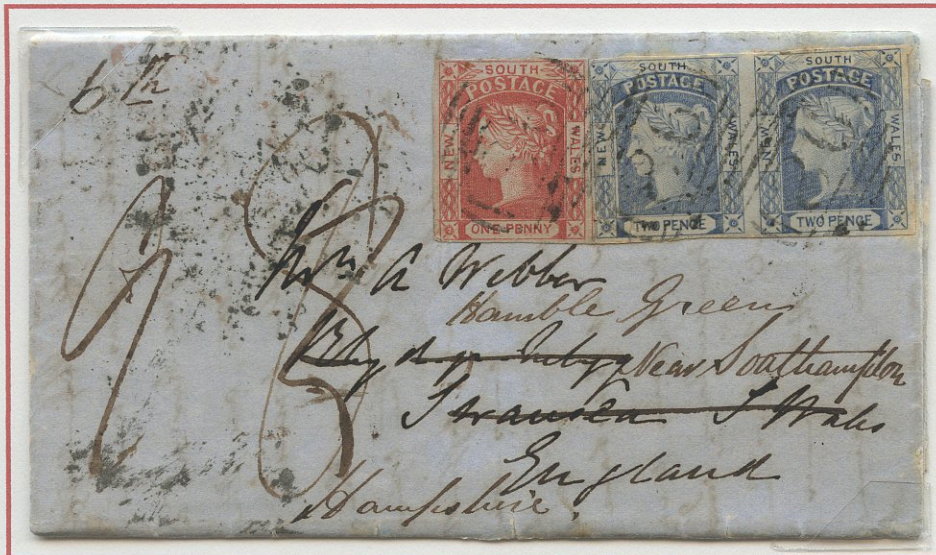 6
SOUTH
POSTAGE
NEW
WALES
ONE PENNY
SOUTH
POSTAGE
NEW
WALES
TWO PENCE
SOUTH
POSTAGE
NEW
WALES
TWO PENCE
A Webber
Hamble Green
Near Southampton
Swansea S Wales
England
Hampshire.